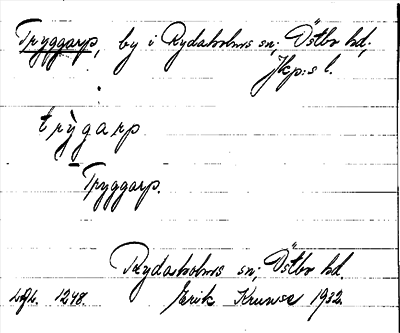 Tryggarp, by i Rydaholms sn; Östbo hd,
Jkp:s l.
trỳgarp
Tryggarp.
Rydaholms sn; Östbo hd.
1248. Erik Krunse 1932.